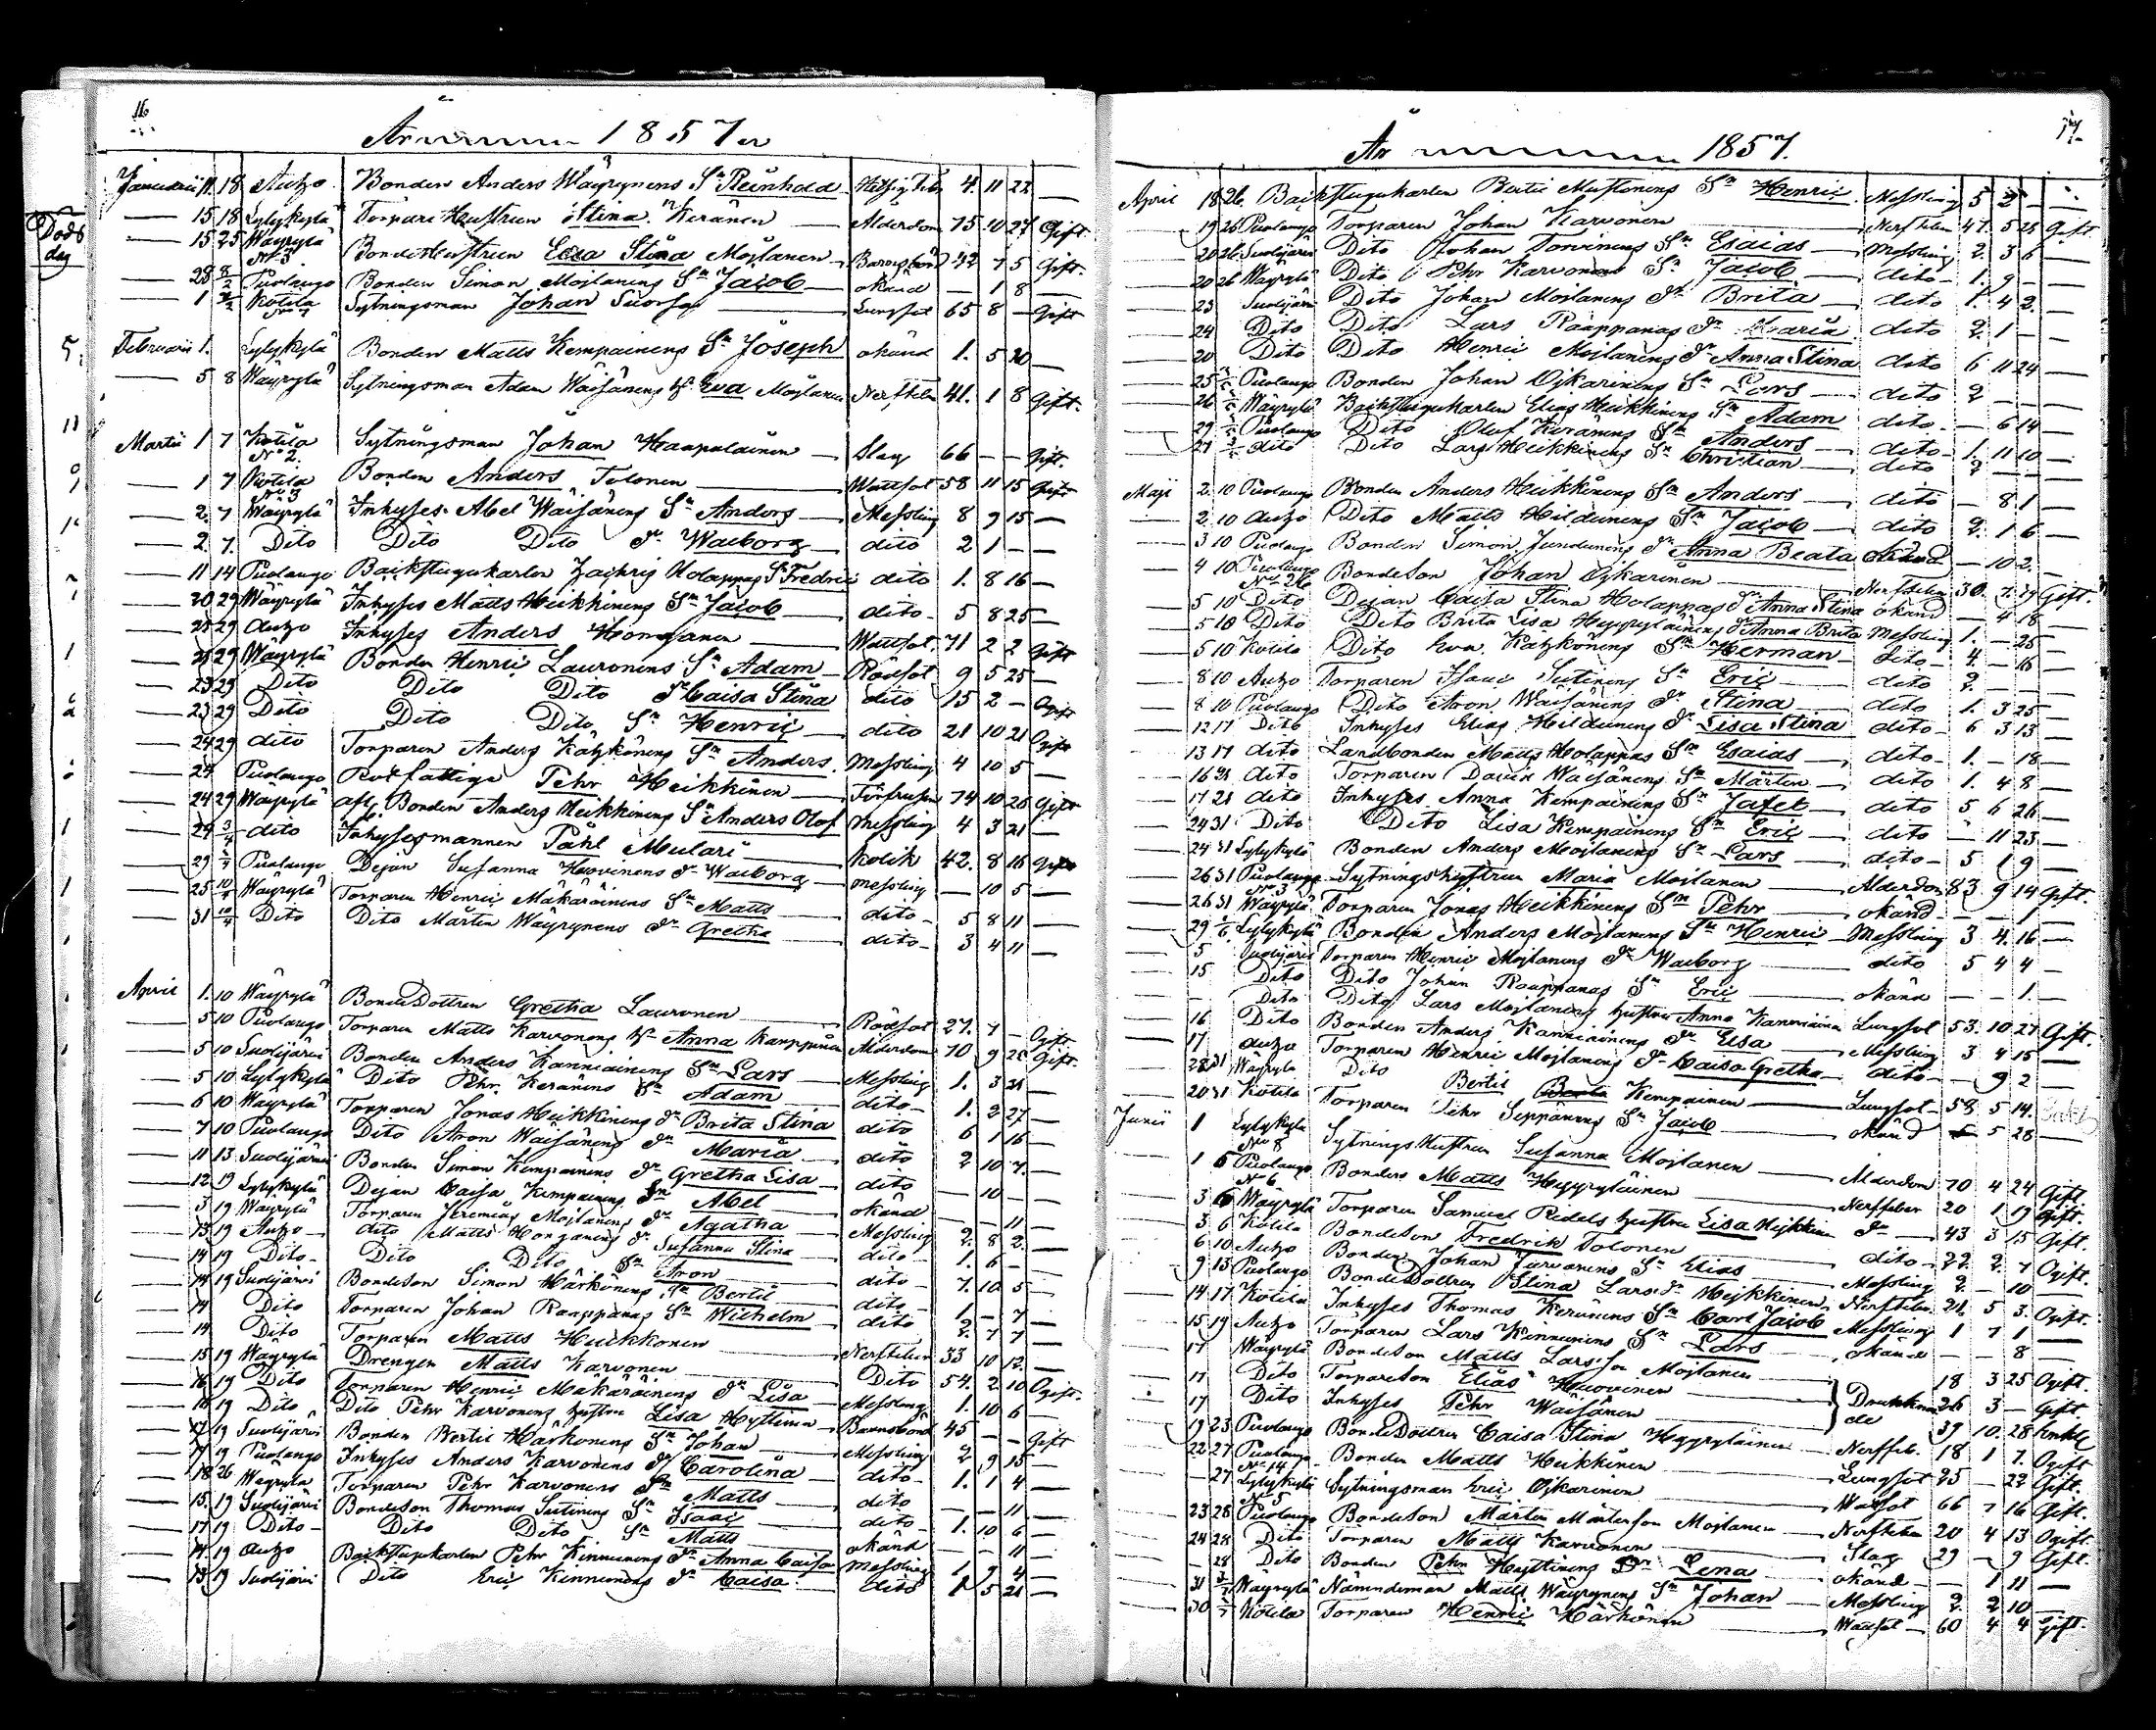 16
År 1857
Döds
dag
Januarii 11. 18 Autjo Bonden Anders Wäyrynens Sn Reinhold Hetsig Feb. 4. 11 22 —
— 15 18 Lylykylä Torpare Hustrun Stina Keränen Ålderdom 75 10 27 Gift
— 15 25 Wäyrylä No 3 BondeHustrun Stina Mojlanen Barnsbörd 42 7 5 Gift.
— 28 8/2 Puolango Bonden Simon Mojlanens Sn Jacob okänd — 1 8 —
— 1 Kotila Sytningsman Johan Lungsot 65 8 — Gift
Februarii 1. Lylykylä Bonden Matts Kempainens Sn Joseph okänd 1. 5 20 —
— 5 8 Wäyrylä Sytningsman Adam Wäisänens h. Eva Mojlanen Nerffeber 41. 1 8 Gift.
Martii 1 7 Kotila No 2. Sytningsman Johan Haapalainen — Slag 66 — — Gift.
— 1 7 Kotila No 3 Bonden Anders Tolonen Wattsot 58 11 15 Gift
— 2. 7 Wäyrylä Inhyses Abel Wäisänens Sn Anders Messling 8 9 15 —
— 2. 7. Dito Dito Dito Dr Walborg dito 2 1 — —
— 11 14 Puolango Backstugukarlen Zachris Holappas Sn Fredric dito 1. 8 16 —
— 20 29 Wäyrylä Inhyses Matts Heikkinens Sn Jacob dito 5 8 25 —
— 29 Autjo Inhyses Anders Wattsot. 71 2 2 Gift
— 21 29 Wäyrylä Bonden Henric Lauronens Sn Adam Rödsot 9 5 25 —
— 23 29 Dito Dito Dito Dr Caisa Stina dito 15 2 — Ogift
— 23 29 Dito Dito Dito Sn Henric dito 21 10 21 Ogift
— 24 29 dito Torparen Anders Kätkönens Sn Anders. Messling 4 10 5 —
— 24 Puolango Rotfattige Pehr Heikkinen 74 10 26 Gift
— 24 29 Wäyrylä afl. Bonden Anders Heikkinens Sn Anders Olof Messling 4 3 21 —
— 29 3/4 dito Inhysesmannen Påhl Mulari Kolik 42. 8 16 Gift
— 29 Puolango Dejan Susanna Huovinens Dr Walborg Messling — 10 5 —
— 25 10/4 Wäyrylä Torparen Henric Mäkäräinens Sn Matts dito 5 8 11 —
— 31 10/4 Dito Dito Mårten Wäyrynens Dr Gretha dito 3 4 11 —
April 1. 10 Wäyrylä BondeDottren Gretha Lauronen Rödsot 27. 7 — Ogift.
— 5 10 Puolango Torparen Matts Karvonens h. Anna Karppinen Ålderdom 70 9 Gift.
— 5 10 Suolijärvi Bonden Anders Kanniainens Sn Lars Messling 1. 3 21 —
— 5 10 Lylykylä Dito Pehr Keränens Sn Adam dito 1. 2 27 —
— 6 10 Wäyrylä Torparen Jonas Heikkinens Dr Brita Stina dito 6 1 16 —
— 7 10 Puolango Dito Aron Wäisänens Dr Maria dito 2 10 7. —
— 11 13 Suolijärvi Bonden Simon Kempainens Dr Gretha Lisa dito — 10 — —
— 12 19 Lylykylä Dejan Caisa Kempainens Sn Abel okänd — — 11 —
— 3 19 Wäyrylä Torparen Jeremias Mojlanens Dr Agatha Messling 2. 8 2. —
— 13 19 Autjo dito Matts Dr Susanna Stina dito 1. 6 — —
— 14 19 Dito Dito Dito Sn Aron dito 7. 10 5 —
— 14 19 Suolijärvi Bondeson Simon Härkönens Sn Bertil dito 1 — 7 —
— 14 Dito Torparen Johan Raappanas Sn Wilhelm dito 2. 7 7 —
— 14 Dito Torparen Matts Heikkonen Nerffeber 33 10 12. —
— 15 19 Wäyrylä Drengen Matts Karvonen Dito 54. 2 10 Ogift.
— 16 19 Dito Torparen Henric Mäkäräinens Dr Lisa Messling 1. 10 6 —
— 16 19 Dito Dito Pehr Karvonens hustru Lisa Hyttinen Barnsbörd 45 — — Gift
— 17 19 Suolijärvi Bonden Bertil Härkönens Sn Johan Messling 2 9 15 —
— 17 19 Puolango Inhyses Anders Karvonens Dr Carolina dito 1. 1 4 —
— 18 26 Wäyrylä Torparen Pehr Karvonens Sn Matts dito — — 11 —
— 15. 19 Suolijärvi Bondeson Thomas Sutinens Sn Isaac dito 1. 10 6 —
— 17 19 Dito Dito Dito Sn Matts okänd — — 11 —
— 14. 19 Autjo Backstugukarlen Pehr Kinnunens Dr Anna Caisa Messling 1 9 4 —
— 13 19 Suolijärvi Dito Eric Kinnunens Dr Caisa dito 1 5 21 —
17
År 1857.
April 18 26. Backstugukarlen Bertil Sn Henric Messling 5 2 —
— 19 26 Puolango Torparen Johan Karvonen Nerffeber 47. 5 28 Gift.
— 20 26 Suolijärvi Dito Johan Torvinens Sn Esaias Messling 2. 3 6 —
— 20 26 Wäyrylä Dito Pehr Karvonens Sn Jacob dito 1. 9 — —
— 23 Suolijärvi Dito Johan Mojlanens Dr Brita dito 1. 4 2. —
— 24 Dito Dito Lars Raappanas Dr Maria dito 2. 1 — —
— 20 Dito Dito Henric Mojlanens Dr Anna Stina dito 6 11 24 —
— 25 Puolango Bonden Johan Ojkarinens Sn Lars dito 2 — —
— 26 Wäyrylä Backstugukarlen Elias Heikkinens Sn Adam dito — 6 14 —
— 29 Puolango Dito Olof Keränens Sn Anders dito 1. 11 10 —
— 27 dito Dito Lars Heikkinens Sn Christian dito 2 — —
Maji 2. 10 Puolango Bonden Anders Heikkinens Sn Anders dito — 8 1 —
— 2. 10 Autjo Dito Matts Hildunens Sn Jacob dito 2. 1 6 —
— 3 10 Puolango Bonden Simon Jundunens Dr Anna Beata okänd — 10 2. —
— 4 10 Puolango No 26 Bondeson Johan Ojkarinen Nerffeber 30. 7. 19 Gift.
— 5 10 Dito Dejan Caisa Stina Holappas Dr Anna Stina okänd — 4 18 —
— 5 10 Dito Dito Brita Lisa Heyryläinens Dr Anna Brita Messling 1. — 25 —
— 5 10 Kotila Dito Eva Kätkönens Sn Herman dito 4. — 16 —
— 8 10 Autjo Torparen Isaac Sutinens Sn Eric dito 2. — —
— 8 10 Puolango Dito Aron Wäisänens Dr Stina dito 1. 3 25 —
— 12 17 Dito Inhyses Elias Hildunens Dr Lisa Stina dito 6 3 13 —
— 13 17 dito Landbonden Matts Holappas Sn Esaias dito 1. — 18 —
— 16 21 dito Torparen David Wäisänens Sn Mårten dito 1. 4 8 —
— 17 21 dito Inhyses Anna Kempainens Sn Jafet dito 5 6 26 —
— 24 31 Dito Dito Lisa Kempainens Sn Eric dito — 11 23 —
— 24 31 Lylykylä Bonden Anders Mojlanens Sn Lars dito 5 1 9 —
— 26 31 Puolango No 3 Sytningshustrun Maria Mojlanen Ålderdom 83 9 14 Gift.
— 26 31 Wäyrylä Torparen Jonas Heikkinens Sn Pehr okänd — — 1 —
— 29 Lylykylä Bonden Anders Mojlanens Sn Henric Messling 3 4. 16 —
— 5 Suolijärvi Torparen Henric Mojlanens Dr Walborg dito 5 4 4 —
— 15 Dito Dito Johan Raappanas Sn Eric okänd — — 1. —
— Dito Dito Lars Mojlanens hustru Anna Kanniainen Lungsot 53. 10 27 Gift.
— 16 Dito Bonden Anders Kanniainens Dr Elsa Messling 3 4 15 —
— 17 Autjo Torparen Henric Mojlanens Dr Caisa Gretha dito — 9 2 —
— 22 31 Wäyrylä Dito Bertil Kempainen Lungsot 58 5 14.
— 20 31 Kotila Torparen Pehr Seppänens Sn Jacob okänd 5 28 —
Junii 1 Lylykylä No 8 SytningsHustrun Susanna Mojlanen Ålderdom 70 4 24 Gift.
— 1 6 Puolango No 6 Bonden Matts Heyryläinen Nerffeber 20 1 19 Gift.
— 3 6 Wäyrylä Torparen Samuel Ridels hustru Lisa Heikkinen 43 3 15 Gift.
— 3 6 Kotila Bondeson Fredrik Tolonen dito 22 2. 7 Ogift.
— 6 10 Autjo Bonden Johan Juvanens Sn Elias Messling 2. — 10 —
— 9 13 Puolango BondeDottren Stina Larsdr Heikkinen Nerffeber 21. 5 3. Ogift.
— 14 17 Kotila Inhyses Thomas Keränens Sn Carl Jacob Messling 1 7 1 —
— 15 19 Autjo Torparen Lars Kinnunens Sn Lars okänd — — 8 —
— 17 Wäyrylä Bondeson Matts Larsson Mojlanen 18 3 25 Ogift.
— 17 Dito Torpareson Elias Huovinen Drunknade 26 3 — Gift
— 17 Dito Inhyses Pehr Wäisänen 39 10. 28 Enkl.
— 19 23 Puolango BondeDottren Caisa Stina Heyryläinen Nerffeb. 18 1 7. Ogift
— 22 27 Puolango No 14 Bonden Matts Heikkinen Lungsot 25 — 22 Gift.
— 27 Lylykylä No 5 Sytningsman Eric Ojkarinen Wattsot 66 7 16 Gift.
— 23 28 Puolango Bondeson Mårten Mårtensson Mojlanen Nerffeber 20 4 13 Ogift.
— 24 28 Dito Torparen Matts Karvonen Slag 29 — 9 Gift.
— 28 Dito Bonden Pehr Hyttinens Dr Lena okänd — 1 11 —
— 31 3/7 Wäyrylä Nämndeman Matts Wäyrynens Sn Johan Messling 2. 2 10 —
— 30 Kotila Torparen Henric Härkönen Wattsot 60 4 4 Gift.